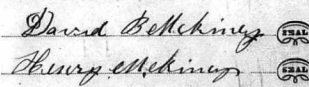 David B McKiney SEAL
Henry McKiney SEAL